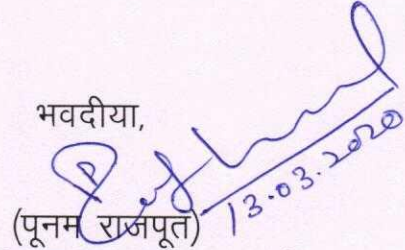 भवदीया,
13.03.2020
(पूनम राजपूत)